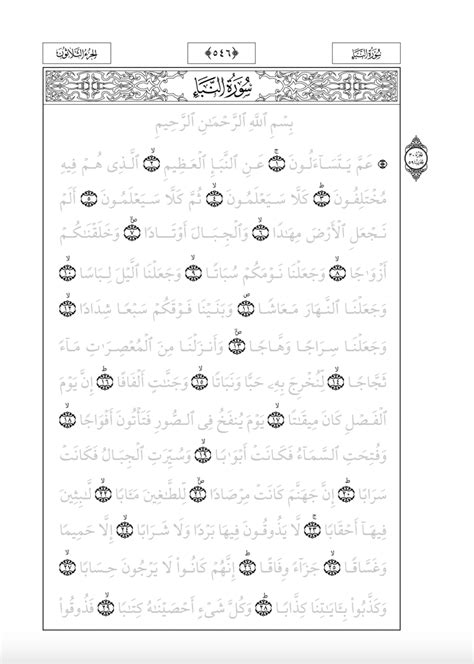 سُورَةُ النَّبَإِ
﴿٥٤٦﴾
الجزء الثلاثون
سُورَةُ النَّبَإِ
بِسْمِ ٱللَّهِ ٱلرَّحْمَـٰنِ ٱلرَّحِيمِ
عَمَّ يَتَسَآءَلُونَ ١ عَنِ ٱلنَّبَإِ ٱلْعَظِيمِ ٢ ٱلَّذِى هُمْ فِيهِ
مُخْتَلِفُونَ ٣ كَلَّا سَيَعْلَمُونَ ٤ ثُمَّ كَلَّا سَيَعْلَمُونَ ٥ أَلَمْ
نَجْعَلِ ٱلْأَرْضَ مِهَـٰدًا ٦ وَٱلْجِبَالَ أَوْتَادًا ٧ وَخَلَقْنَـٰكُمْ
أَزْوَٰجًا ٨ وَجَعَلْنَا نَوْمَكُمْ سُبَاتًا ٩ وَجَعَلْنَا ٱلَّيْلَ لِبَاسًا ١٠
وَجَعَلْنَا ٱلنَّهَارَ مَعَاشًا ١١ وَبَنَيْنَا فَوْقَكُمْ سَبْعًا شِدَادًا ١٢
وَجَعَلْنَا سِرَاجًا وَهَّاجًا ١٣ وَأَنزَلْنَا مِنَ ٱلْمُعْصِرَٰتِ مَآءً
ثَجَّاجًا ١٤ لِّنُخْرِجَ بِهِۦ حَبًّا وَنَبَاتًا ١٥ وَجَنَّـٰتٍ أَلْفَافًا ١٦ إِنَّ يَوْمَ
ٱلْفَصْلِ كَانَ مِيقَـٰتًا ١٧ يَوْمَ يُنفَخُ فِى ٱلصُّورِ فَتَأْتُونَ أَفْوَاجًا ١٨
وَفُتِحَتِ ٱلسَّمَآءُ فَكَانَتْ أَبْوَٰبًا ١٩ وَسُيِّرَتِ ٱلْجِبَالُ فَكَانَتْ
سَرَابًا ٢٠ إِنَّ جَهَنَّمَ كَانَتْ مِرْصَادًا ٢١ لِّلطَّـٰغِينَ مَـَٔابًا ٢٢ لَّـٰبِثِينَ
فِيهَآ أَحْقَابًا ٢٣ لَّا يَذُوقُونَ فِيهَا بَرْدًا وَلَا شَرَابًا ٢٤ إِلَّا حَمِيمًا
وَغَسَّاقًا ٢٥ جَزَآءً وِفَاقًا ٢٦ إِنَّهُمْ كَانُوا۟ لَا يَرْجُونَ حِسَابًا ٢٧
وَكَذَّبُوا۟ بِـَٔايَـٰتِنَا كِذَّابًا ٢٨ وَكُلَّ شَىْءٍ أَحْصَيْنَـٰهُ كِتَـٰبًا ٢٩ فَذُوقُوا۟